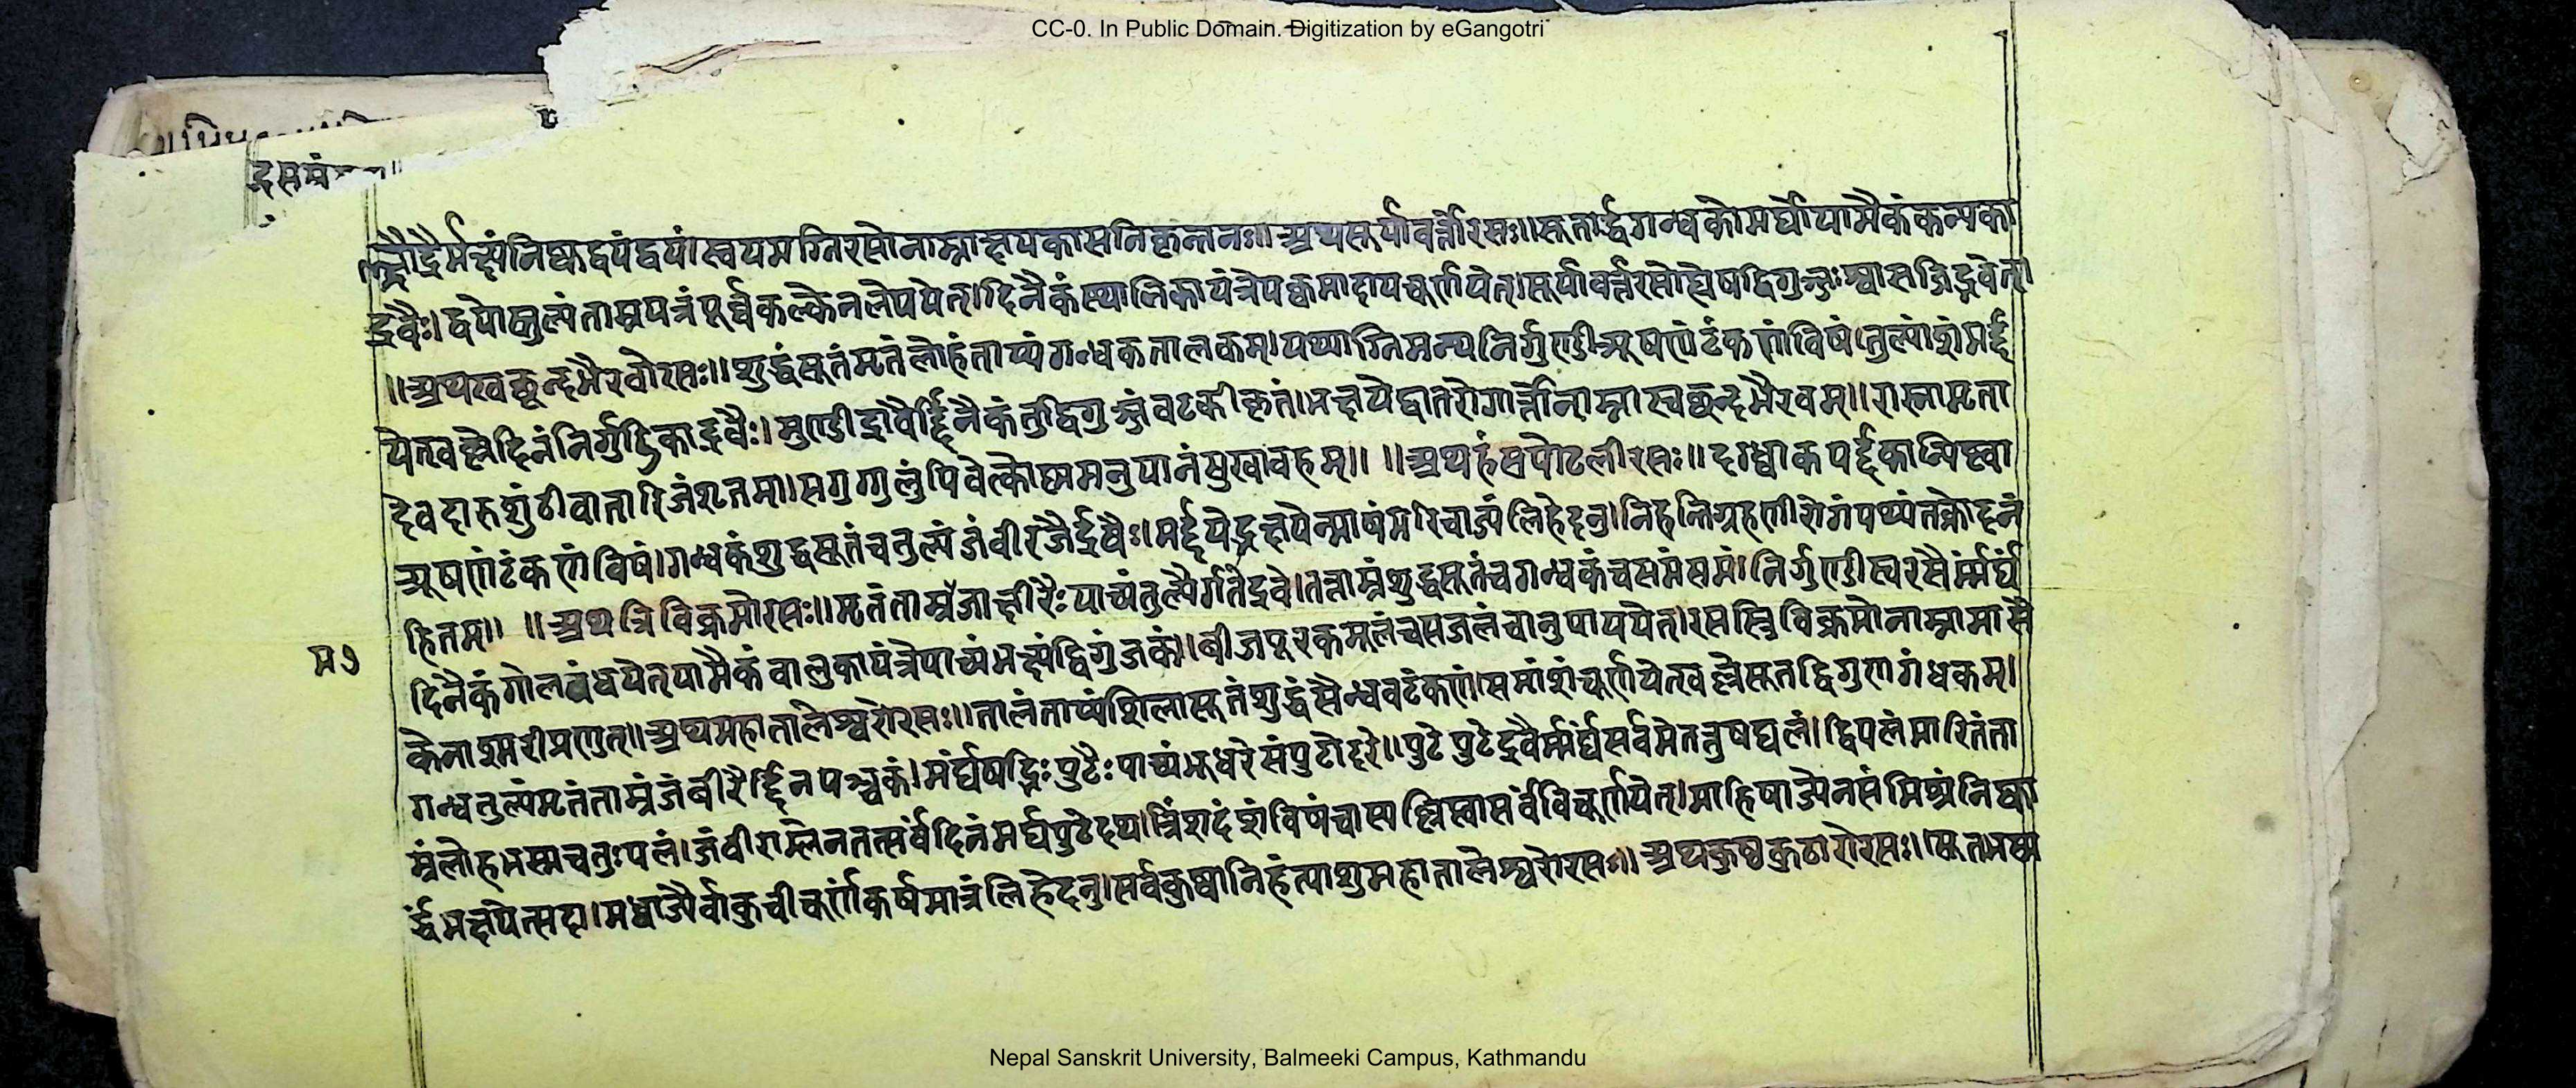 CC-0. In Public Domain. Digitization by eGangotri
द्रसमं
क्षौद्रैर्भक्ष्यंनिष्कद्वयंद्वयं।स्वयमग्निरसोनाम्नाक्षयकासनिकृन्तनः॥अथसूर्यावर्त्तोरसः॥सूतार्द्धगन्धकोमर्घोयामैकंकन्यका
द्रवैः।द्वयोस्तुल्यंताम्रपत्रंपूर्व्वकल्केनलेपयेत्।दिनैकंस्थालिकायंत्रेपक्वमादायचूर्णयेत्।सूर्यावर्त्तरसोह्येषद्विगुञ्जःश्वासजिद्भवेत्।
॥अथस्वछन्दभैरवोरसः॥शुद्धंसूतंमृतंलोहंताप्यंगन्धकतालकम्।पथ्याग्निमन्थनिर्गुण्डीत्र्यूषणंटंकणंविषं।तुल्यांशंमर्द्द
येत्खल्लेदिनंनिर्गुंडिकाद्रवैः।मुण्डीद्रावैर्द्दिनैकंतुद्विगुञ्जंवटकीकृतं।भक्षयेद्वातरोगार्त्तोनाम्नास्वछन्दभैरवम्॥रास्नामृता
देवदारुशुंठीवातारिजंशृतम्।सगुग्गुलुंपिवेत्कोष्णमनुपानंसुखावहम्॥ ॥अथहंसपोटलीरसः॥दग्ध्वाकपर्द्दकान्पिष्ट्वा
त्र्यूषणंटंकणंविषं।गन्धकंशुद्धसूतंचतुल्यंजंवीरजैर्द्रवैः।मर्द्दयेद्भक्षयेन्माषंमरिचाज्यंलिहेदनु।निहन्तिग्रहणीरोगंपथ्यंतक्रोदनं
हितम्॥ ॥अथत्रिविक्रमोरसः॥मृतंताम्रंजाक्षीरैःपाच्यंतुल्यैर्गतेद्रवे।तत्ताम्रंशुद्धसूतंचगन्धकंचसमंसमं।निर्गुण्डीस्वरसैर्मर्म्मर्घं
म७
दिनैकंगोलबंधयेत्यामैकंवालुकायंत्रेपाच्यंभक्ष्यंद्विगुंजकं।बीजपूरकमूलंचसजलंचानुपाययेत्।रसस्त्रिविक्रमोनाम्नामासै
केनाश्मरीप्रणुत्॥अथमहातालेश्वरोरसः॥तालंताप्यंशिलासूतंशुद्धंसैन्धवटंकणं।समांशंचूर्णयेत्खल्लेसूतद्विगुणगंधकम्।
गन्धतुल्यंमृतंताम्रंजंबीरैर्द्दिनपञ्चकं।मर्घंषद्भिःपुटैःपाच्यंभूधरेसंपुटोदरे॥पुटेपुटेद्रवैर्म्मर्घंसर्वमेतत्तुषट्पलं।द्विपलंमारितंता
म्रंलोहभस्मचतुःपलं।जंवीराम्लेनतत्सर्वंदिनंमर्घपुटेदय।त्रिंशदंशंविषंचास्यक्षिप्त्वासर्वंविचूर्णयेत्।माहिषाज्येनसंमिश्रंनिष्का
र्द्धंभक्षयेत्सदा।मध्वाज्यैर्वाकुचीचूर्णंकर्षमात्रंलिहेदनु।सर्वकुष्ठानिहंत्याशुमहातालेश्वरोरसः॥अथकुष्ठकुठारोरसः॥सूतभस्म
Nepal Sanskrit University, Balmeeki Campus, Kathmandu